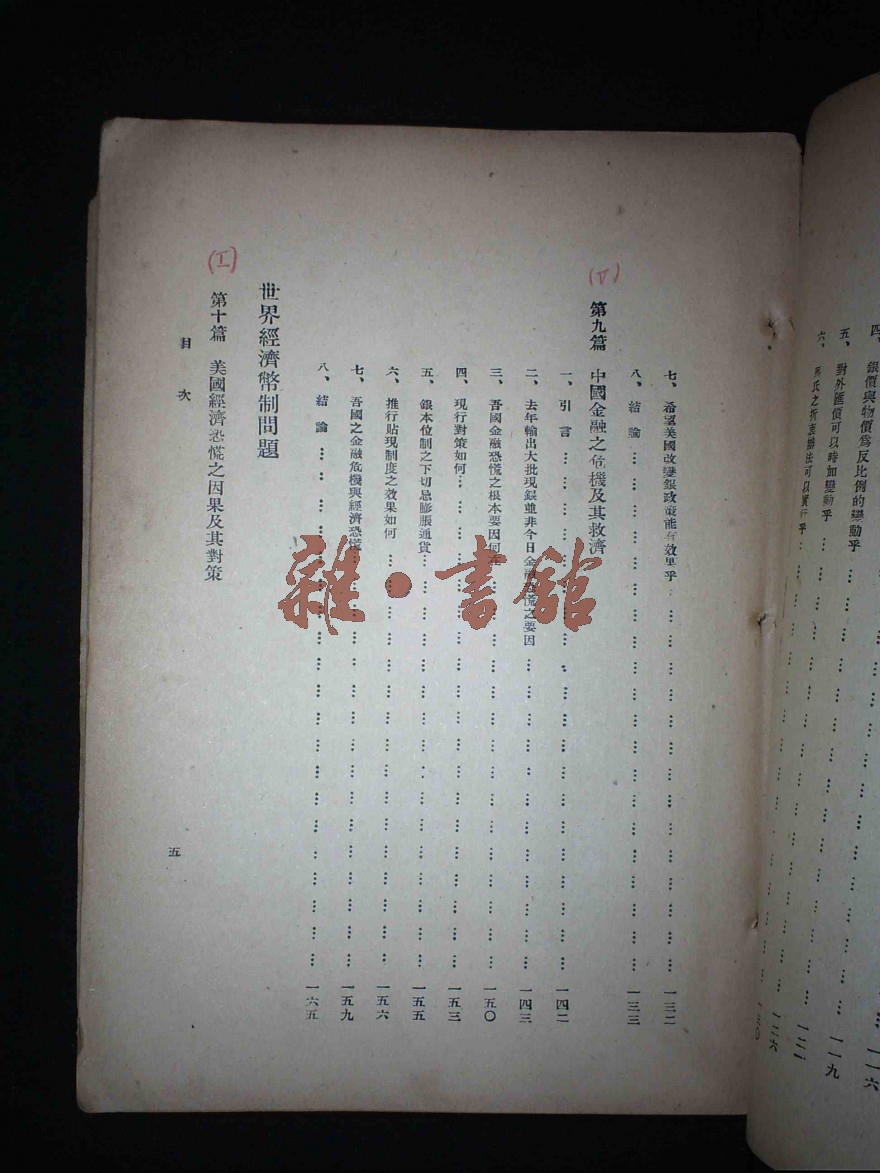 四、銀價與物價爲反比例的變動乎…………一一六
五、對外匯價可以時加變動乎…………一一九
六、
之折衷辦法可以實行乎…………一二二
一二六
七、希望美國改變銀政策能有效果乎…………一三二
八、結論…………一三三
(V)
第九篇 中國金融之危機及其救濟
一、引言…………一四二
二、去年輸出大批現銀並非今日金融恐慌之要因…………一四三
三、吾國金融恐慌之根本要因何在…………一五〇
四、現行對策如何…………一五三
五、銀本位制之下切忌膨脹通貨…………一五五
六、推行貼現制度之效果如何…………一五六
七、吾國之金融危機與經濟恐慌…………一五九
八、結論…………一六五
世界經濟幣制問題
(I)
第十篇 美國經濟恐慌之因果及其對策
目次
五
雜·書館